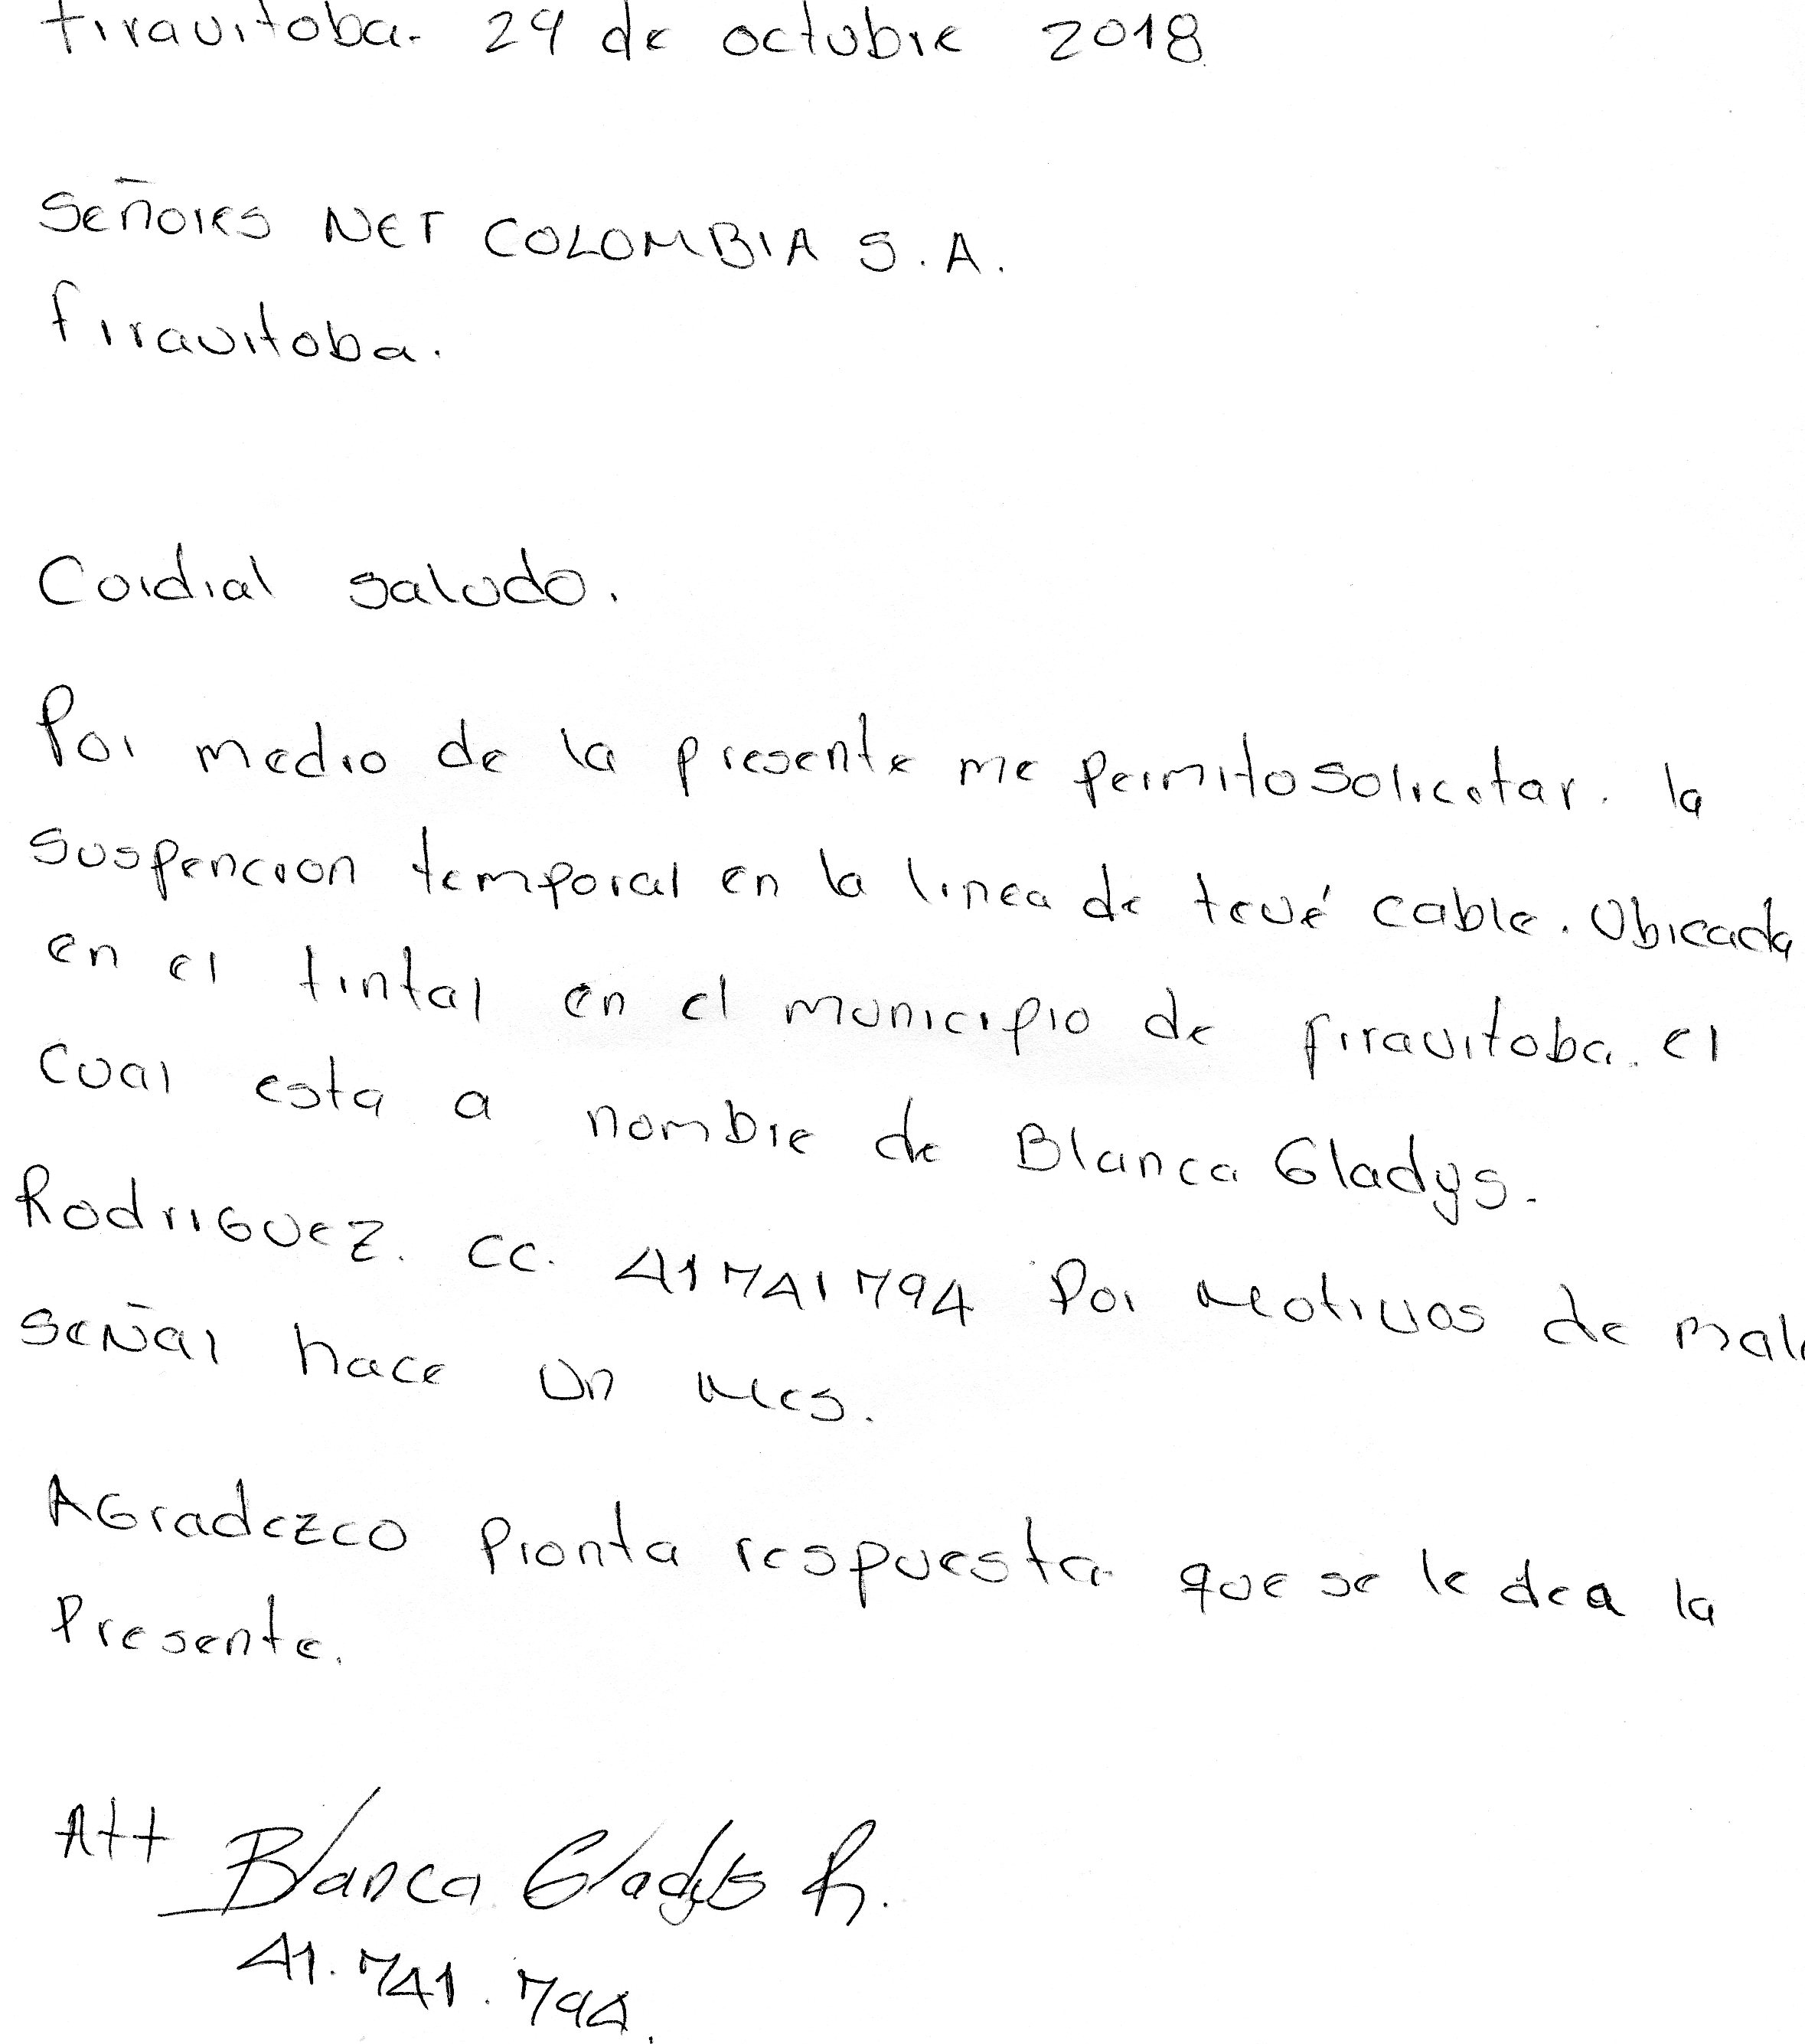 firavitoba. 29 de octubre 2018
Señores NET COLOMBIA S.A.
firavitoba.
Cordial saludo.
Por medio de la presente me permito solicitar. la
suspencion temporal en la linea de tevé cable. Ubicada
en el tintal en el municipio de firavitoba. el
cual esta a nombre de Blanca Gladys.
Rodriguez. cc. 41741794 Por motivos de mala
señal hace un mes.
Agradezco Pronta respuesta que se le de a la
Presente.
Att Blanca Gladys R.
41.741.794.